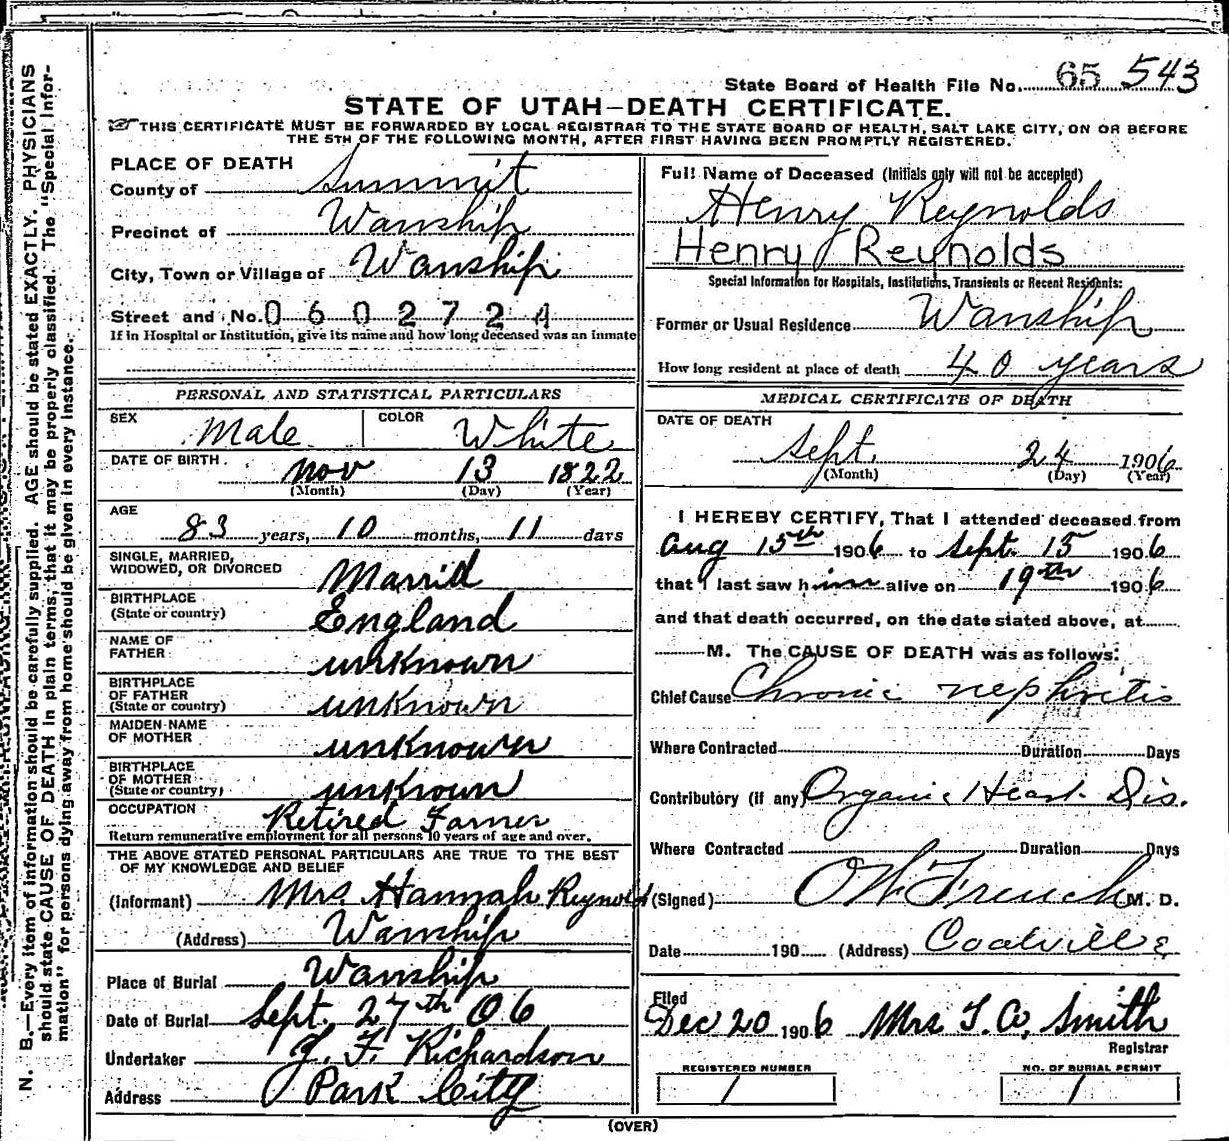 State Board of Health File No. 65 543
STATE OF UTAH—DEATH CERTIFICATE.
THIS CERTIFICATE MUST BE FORWARDED BY LOCAL REGISTRAR TO THE STATE BOARD OF HEALTH, SALT LAKE CITY, ON OR BEFORE
THE 5TH OF THE FOLLOWING MONTH, AFTER FIRST HAVING BEEN PROMPTLY REGISTERED.
PLACE OF DEATH
County of Summit
Precinct of Wanship
City, Town or Village of Wanship
Street and No. 0 6 0 2 7 2
If in Hospital or Institution, give its name and how long deceased was an inmate
PERSONAL AND STATISTICAL PARTICULARS
SEX Male COLOR White
DATE OF BIRTH Nov 13 1822
(Month) (Day) (Year)
AGE
83 years, 10 months, 11 days
SINGLE, MARRIED,
WIDOWED, OR DIVORCED Marrid
BIRTHPLACE
(State or country) England
NAME OF
FATHER unknown
BIRTHPLACE
OF FATHER
(State or country) unknown
MAIDEN NAME
OF MOTHER unknown
BIRTHPLACE
OF MOTHER
(State or country) unknown
OCCUPATION Retired Farmer
Return remunerative employment for all persons 10 years of age and over.
THE ABOVE STATED PERSONAL PARTICULARS ARE TRUE TO THE BEST
OF MY KNOWLEDGE AND BELIEF
(Informant) Mrs. Hannah Reynolds
(Address) Wanship
Place of Burial Wanship
Date of Burial Sept. 27th 06
Undertaker J. F. Richardson
Address Park City
Full Name of Deceased (Initials only will not be accepted)
Henry Reynolds
Henry Reynolds
Special Information for Hospitals, Institutions, Transients or Recent Residents:
Former or Usual Residence Wanship
How long resident at place of death 40 years
MEDICAL CERTIFICATE OF DEATH
DATE OF DEATH
Sept. 24 1906
(Month) (Day) (Year)
I HEREBY CERTIFY, That I attended deceased from
Aug 15th 1906 to Sept. 15 1906
that I last saw him alive on 19th 1906
and that death occurred, on the date stated above, at
M. The CAUSE OF DEATH was as follows:
Chief Cause Chronic nephritis
Where Contracted Duration Days
Contributory (if any) Organic Heart Dis.
Where Contracted Duration Days
(Signed) O W French M. D.
Date 190 (Address) Coalville
Filed
Dec 20 1906 Mrs T. A. Smith
Registrar
REGISTERED NUMBER NO. OF BURIAL PERMIT
1 1
(OVER)
N. B.—Every item of information should be carefully supplied. AGE should be stated EXACTLY. PHYSICIANS
should state CAUSE OF DEATH in plain terms, that it may be properly classified. The "Special Infor-
mation" for persons dying away from home should be given in every instance.